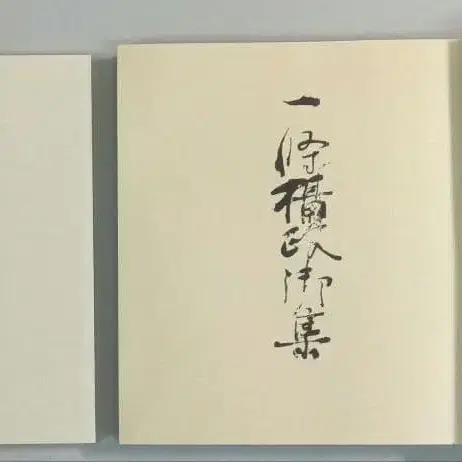 一條攝政御集